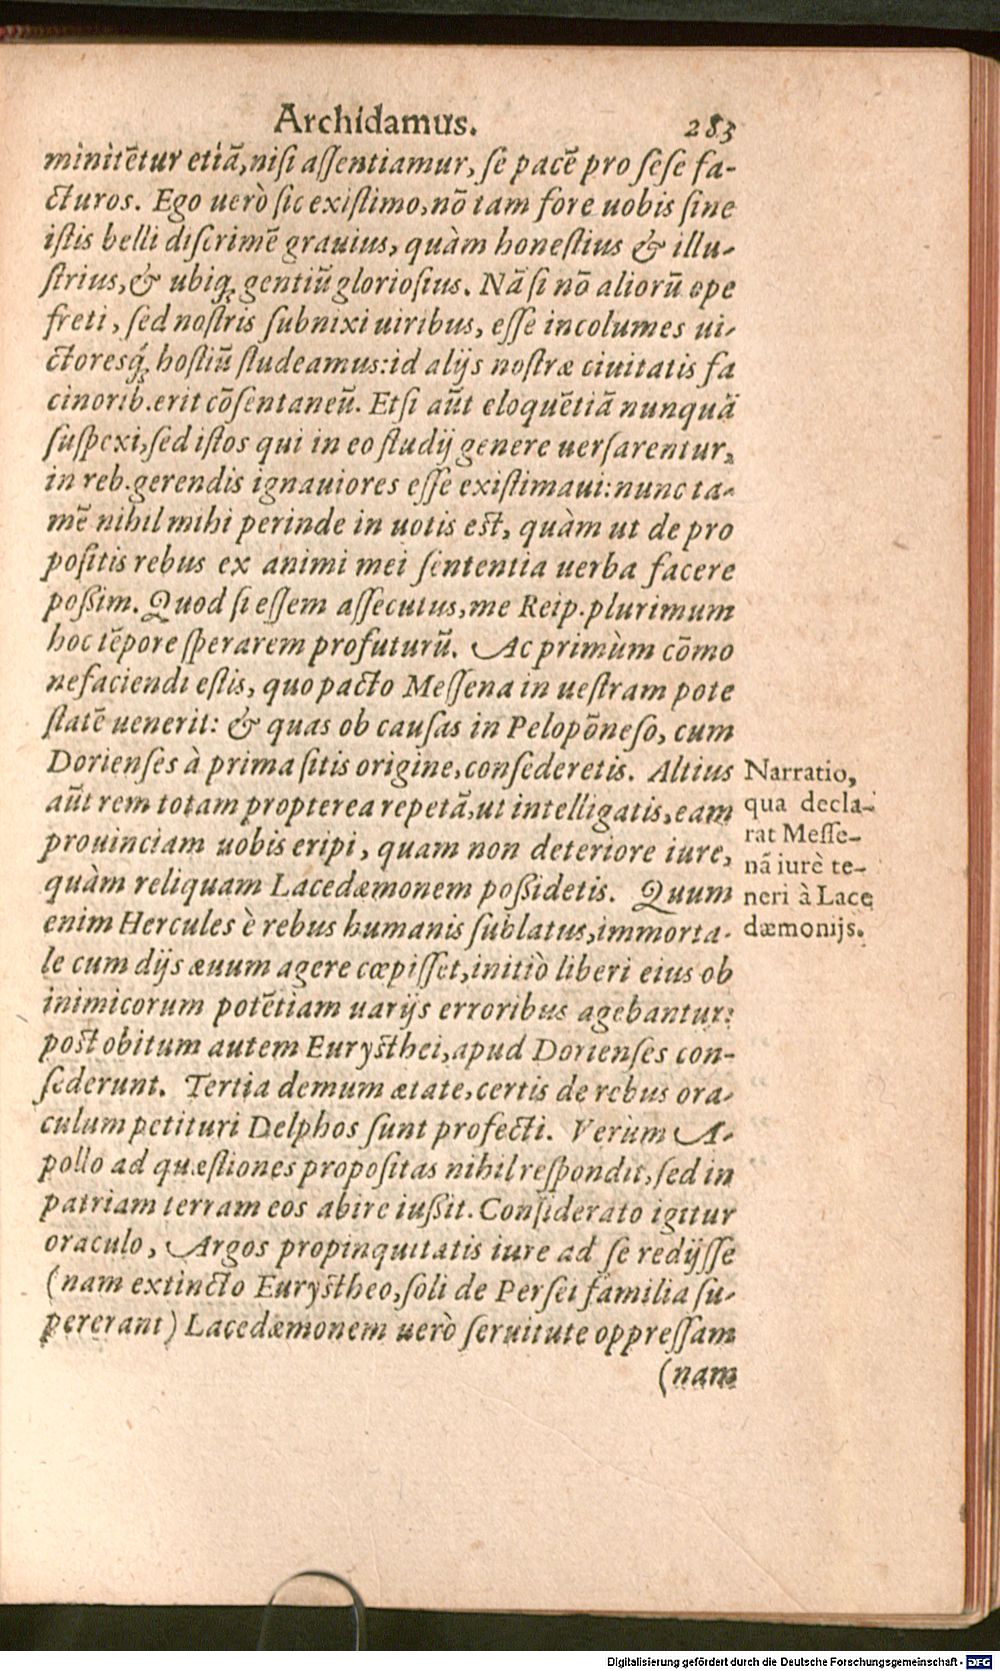 Archidamus. 283
minitētur etiā, nisi assentiamur, se pacē pro sese fa-
cturos. Ego uerò sic existimo, nō tam fore uobis sine
istis belli discrimē grauius, quàm honestius & illu-
strius, & ubiq; gentiū gloriosius. Nā si nō aliorū ope
freti, sed nostris subnixi uiribus, esse incolumes ui-
ctoresq́; hostiū studeamus: id alijs nostræ ciuitatis fa
cinorib. erit cōsentaneū. Etsi aūt eloquētiā nunquā
suspexi, sed istos qui in eo studij genere uersarentur,
in reb. gerendis ignauiores esse existimaui: nunc ta-
mē nihil mihi perinde in uotis est, quàm ut de pro
positis rebus ex animi mei sententia uerba facere
possim. Quod si essem assecutus, me Reip. plurimum
hoc tēpore sperarem profuturū. Ac primùm cōmo
nefaciendi estis, quo pacto Messena in uestram pote
statē uenerit: & quas ob causas in Pelopōneso, cum
Dorienses à prima sitis origine, consederetis. Altius
aūt rem totam propterea repetā, ut intelligatis, eam
prouinciam uobis eripi, quam non deteriore iure,
quàm reliquam Lacedæmonem possidetis. Quum
enim Hercules è rebus humanis sublatus, immorta-
le cum dijs æuum agere cœpisset, initiò liberi eius ob
inimicorum potētiam uarijs erroribus agebantur:
post obitum autem Eurysthei, apud Dorienses con-
sederunt. Tertia demum ætate, certis de rebus ora-
culum petituri Delphos sunt profecti. Verùm A-
pollo ad quæstiones propositas nihil respondit, sed in
patriam terram eos abire iussit. Considerato igitur
oraculo, Argos propinquitatis iure ad se redijsse
(nam extincto Eurystheo, soli de Persei familia su-
pererant) Lacedæmonem uerò seruitute oppressam
(nam
Narratio,
qua decla-
rat Messe-
nā iurè te-
neri à Lace
dæmonijs.
Digitalisierung gefördert durch die Deutsche Forschungsgemeinschaft - DFG